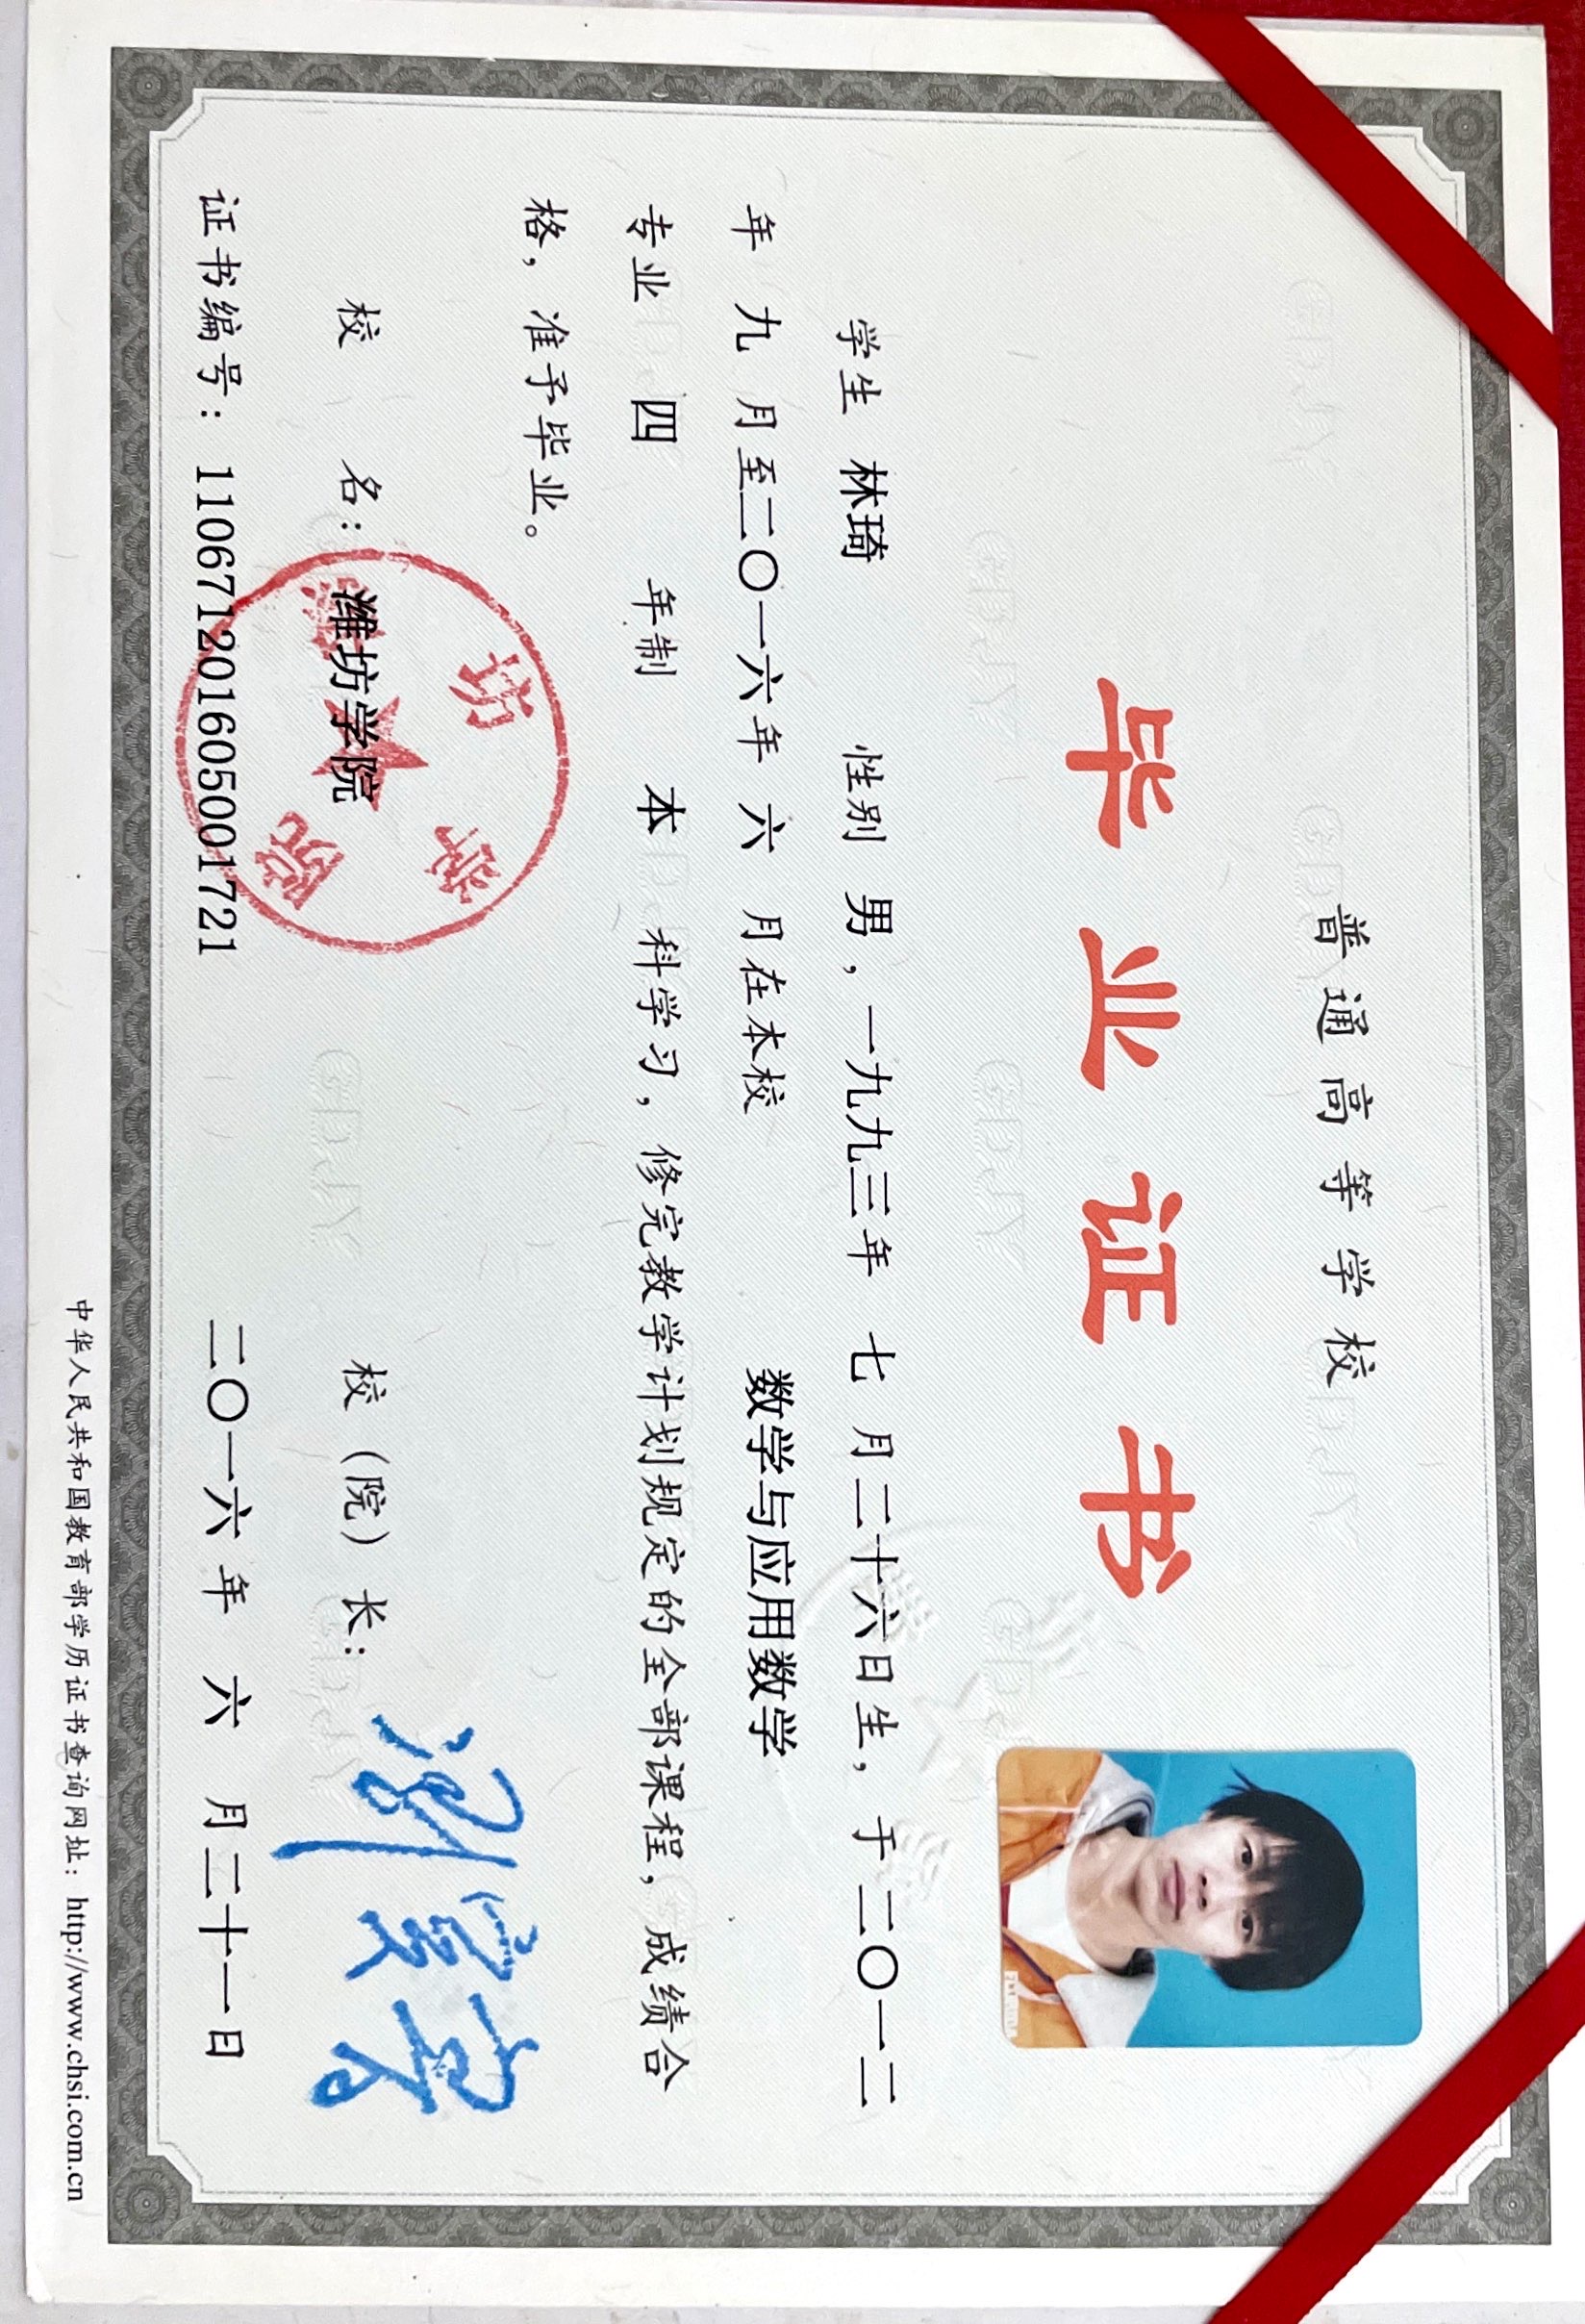 普通高等学校
毕业证书
学生 林琦 性别 男，一九九三年 七 月二十六日生，于二〇一二
年 九 月至二〇一六年 六 月在本校 数学与应用数学
专业 四 年制 本 科学习，修完教学计划规定的全部课程，成绩合
格，准予毕业。
校 名：潍坊学院 校（院）长：
潍坊学院
证书编号：110671201605001721 二〇一六 年 六 月二十一日
中华人民共和国教育部学历证书查询网址：http://www.chsi.com.cn